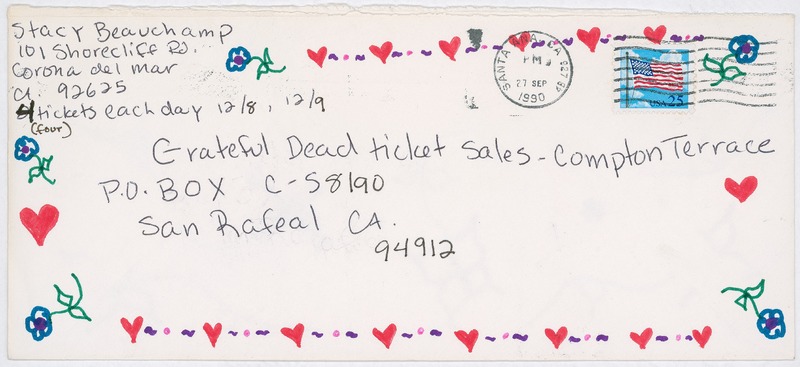 Stacy Beauchamp
101 Shorecliff Rd.
Corona del mar
CA. 92625
4 tickets each day 12/8, 12/9
(four)
SANTA ANA, CA 927 99
PM
27 SEP
1990
USA 25
Grateful Dead ticket sales - Compton Terrace
P.O. BOX C-S8190
San Rafeal CA.
94912